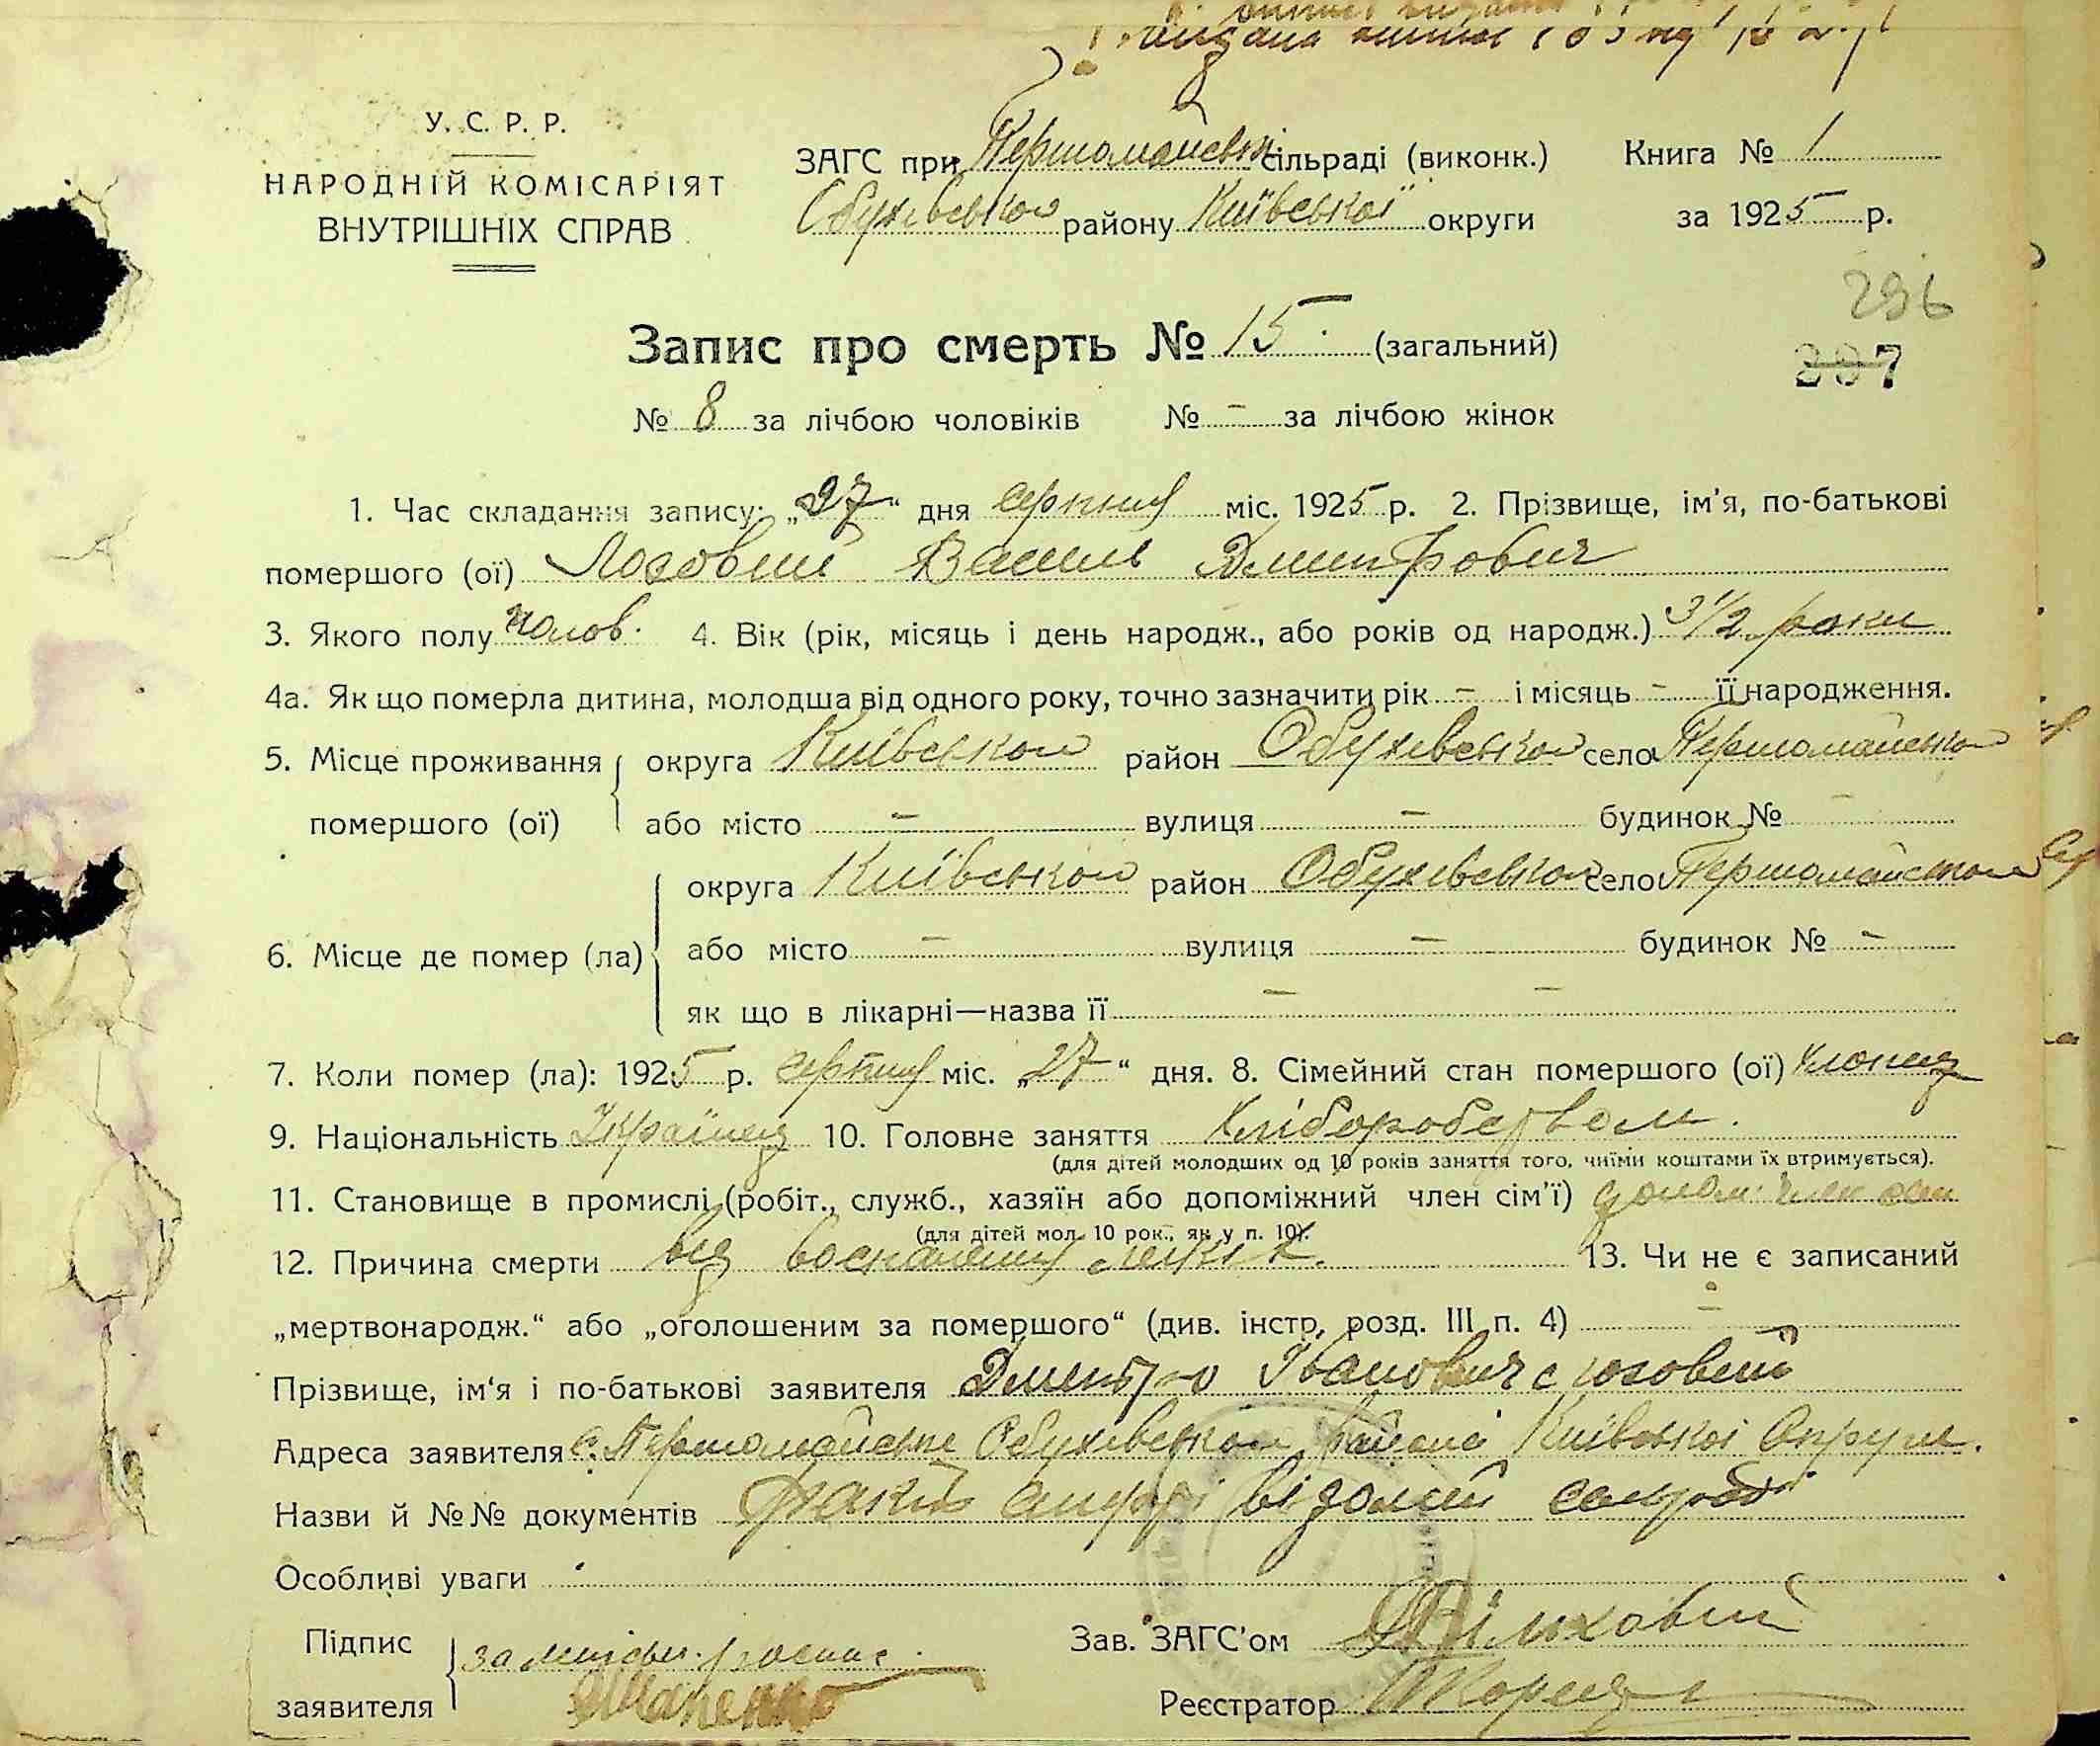 У. С. Р. Р.
НАРОДНІЙ КОМІСАРІЯТ
ВНУТРІШНІХ СПРАВ
ЗАГС при Першомайській сільраді (виконк.)
Обухівського району Київської округи
Книга № 1
за 1925 р.
296
397
Запис про смерть № 15 (загальний)
№ 8 за лічбою чоловіків № - за лічбою жінок
1. Час складання запису: „27" дня серпня міс. 1925 р. 2. Прізвище, ім'я, по-батькові
помершого (ої) Лозовий Василь Дмитрович
3. Якого полу чолов. 4. Вік (рік, місяць і день народж., або років од народж.) 3 1/2 роки
4а. Як що померла дитина, молодша від одного року, точно зазначити рік - і місяць - її народження.
5. Місце проживання округа Київської район Обухівського село Першомайського
помершого (ої) або місто - вулиця - будинок № -
округа Київської район Обухівського село Першомайського
6. Місце де помер (ла) або місто - вулиця - будинок № -
як що в лікарні—назва її - -
7. Коли помер (ла): 1925 р. серпня міс. „27" дня. 8. Сімейний стан помершого (ої) хлопец
9. Національність Українец 10. Головне заняття Хліборобством.
(для дітей молодших од 10 років заняття того, чиїми коштами їх втримується).
11. Становище в промислі (робіт., служб., хазяїн або допоміжний член сім'ї) допом. член сем
(для дітей мол. 10 рок., як у п. 10).
12. Причина смерти від воспаления легких. 13. Чи не є записаний
„мертвонародж." або „оголошеним за помершого" (див. інстр. розд. III п. 4) -
Прізвище, ім'я і по-батькові заявителя Дмитро Іванович Лозовий
Адреса заявителя с. Першомайське Обухівського району Київської Округи.
Назви й №№ документів сільради
Особливі уваги
Підпис
заявителя
Зав. ЗАГС'ом
Реєстратор